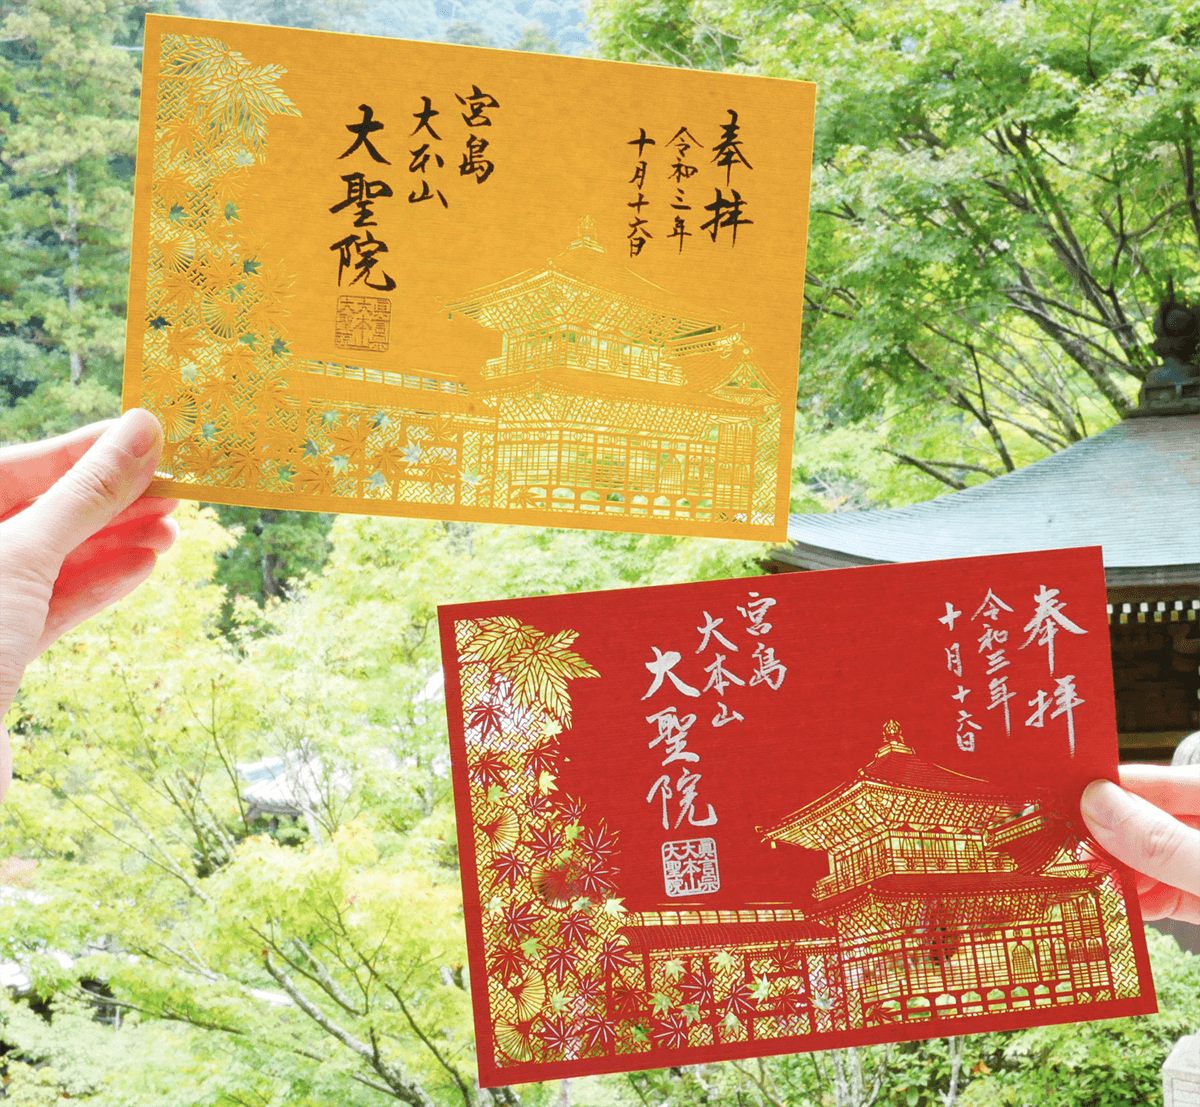 奉拝
令和三年
十月十六日
宮島
大本山
大聖院
眞言宗
大本山
大聖院
奉拝
令和三年
十月十六日
宮島
大本山
大聖院
眞言宗
大本山
大聖院